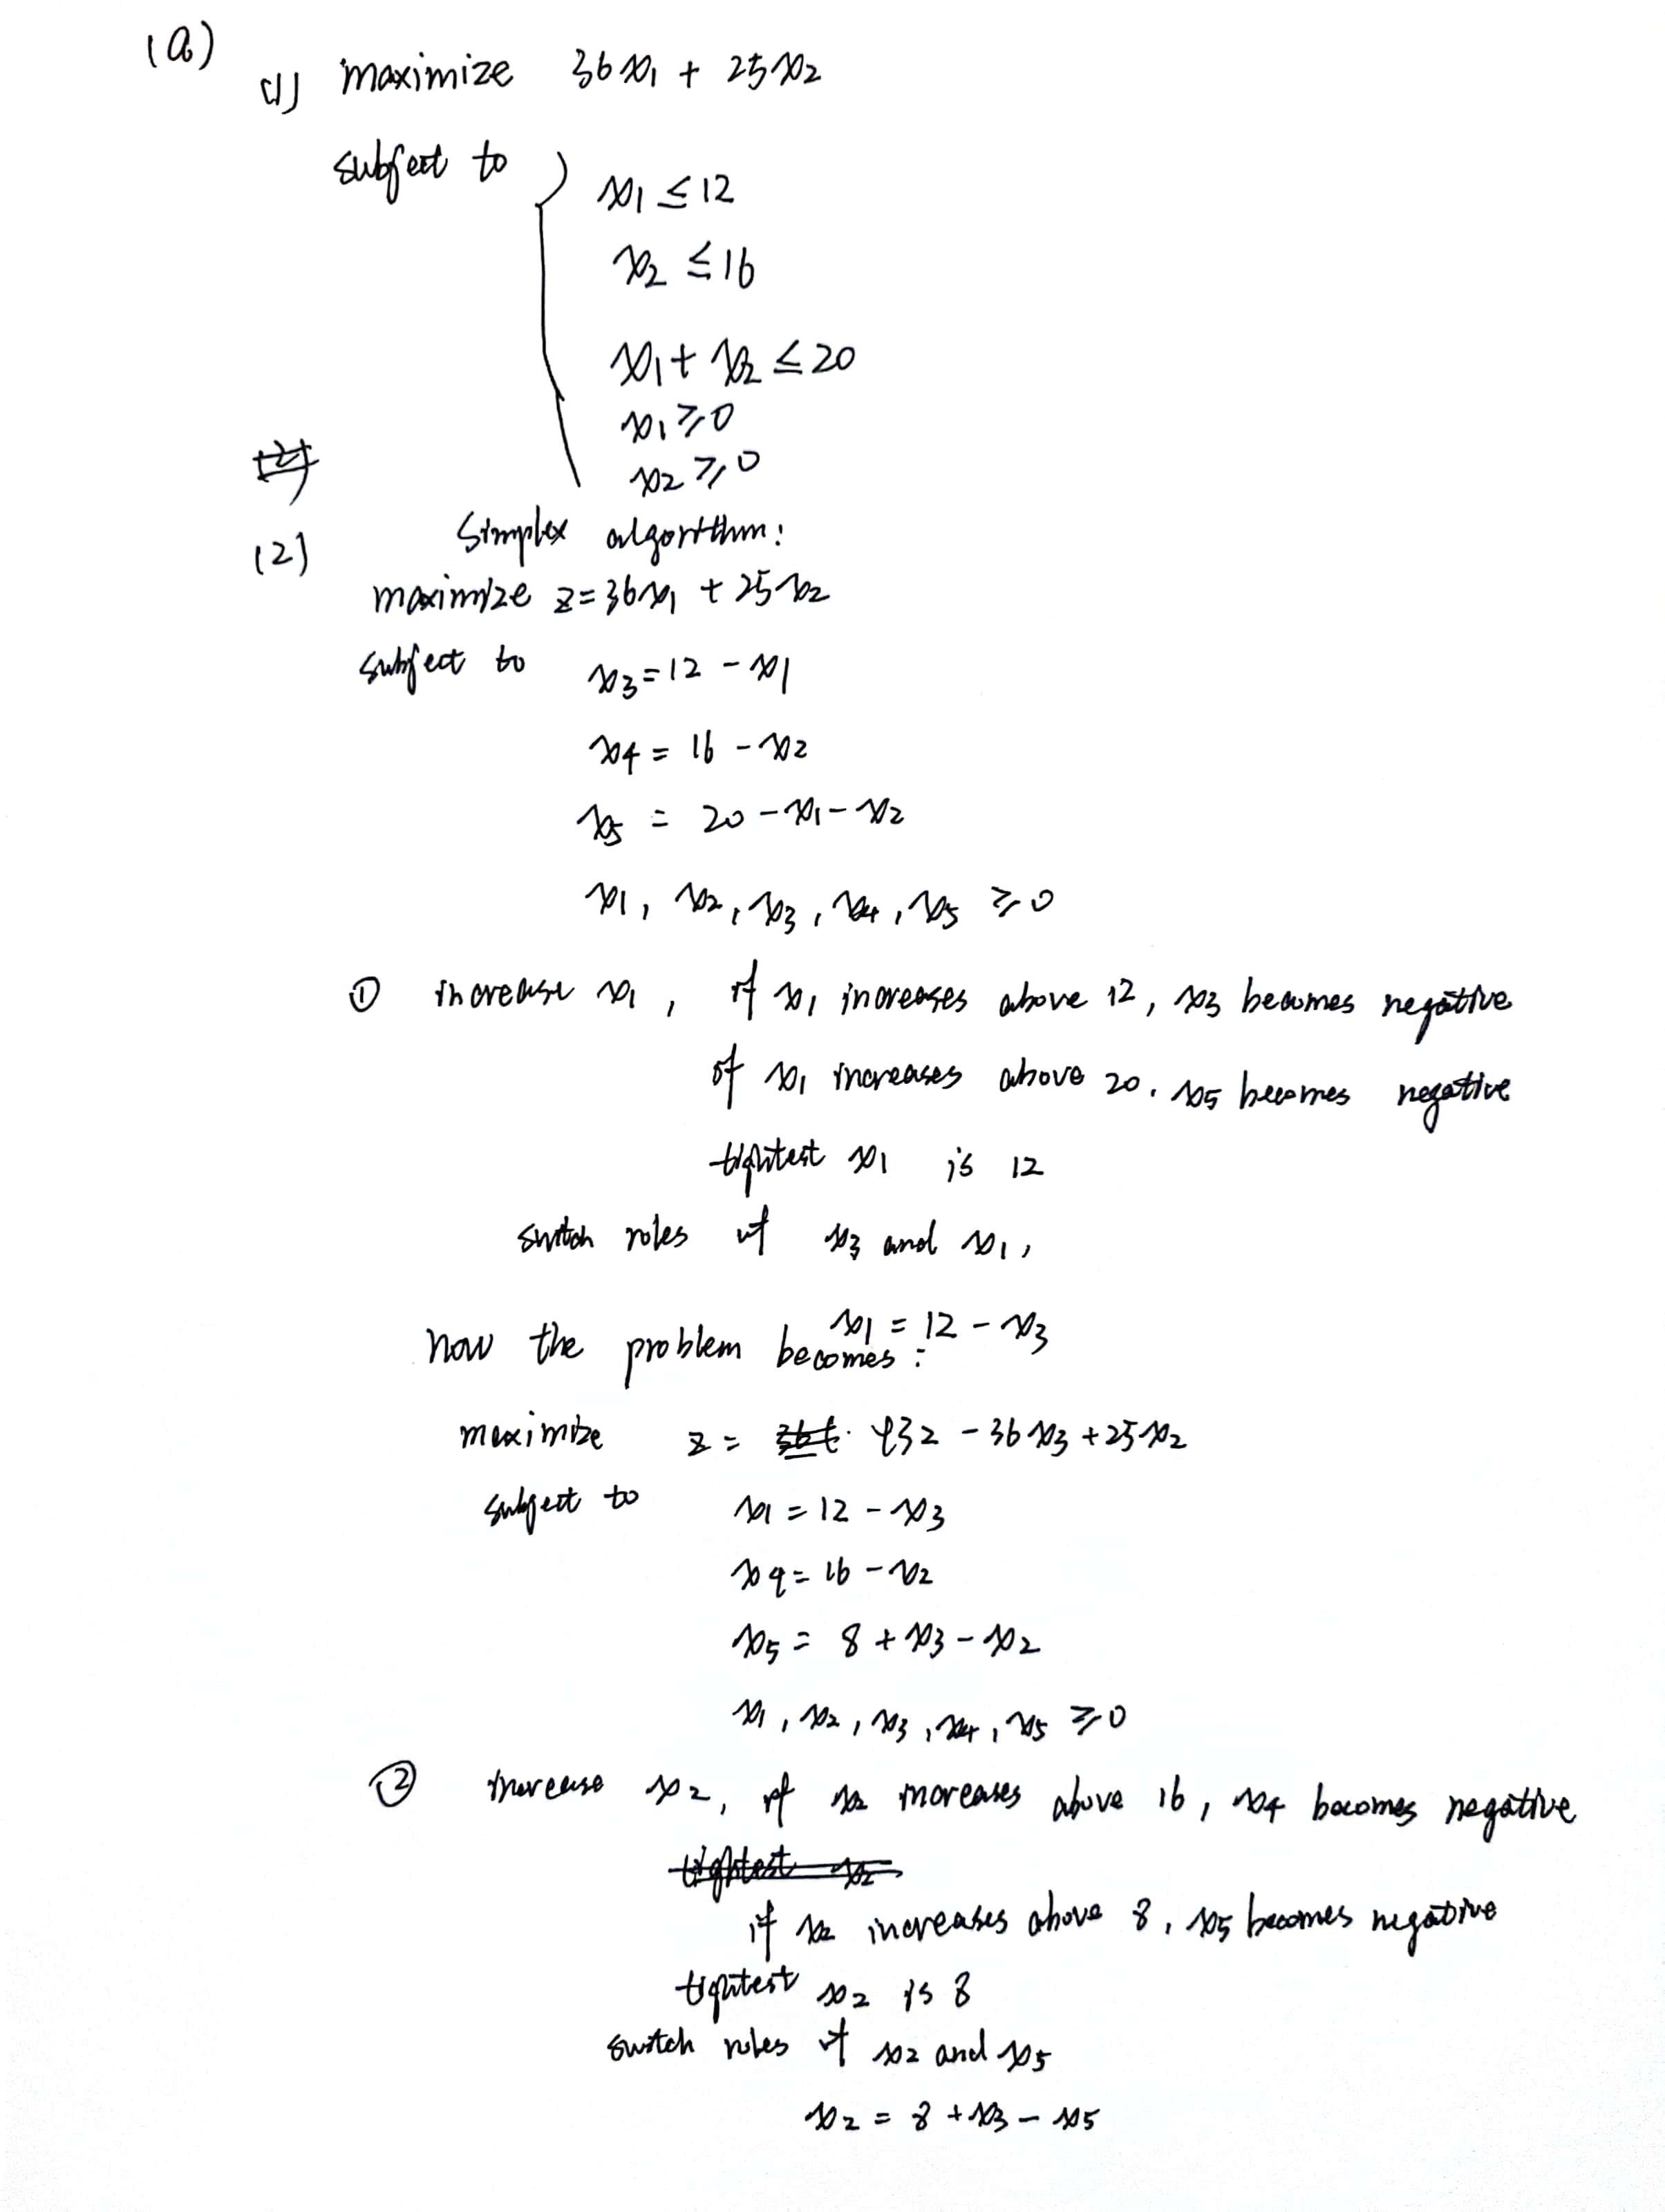 (a)
(1) maximize 36x1 + 25x2
subject to
x1 ≤ 12
x2 ≤ 16
x1 + x2 ≤ 20
x1 ≥ 0
x2 ≥ 0
(2) Simplex algorithm:
maximize z = 36x1 + 25x2
subject to x3 = 12 - x1
x4 = 16 - x2
x5 = 20 - x1 - x2
x1, x2, x3, x4, x5 ≥ 0
① increase x1, if x1 increases above 12, x3 becomes negative
if x1 increases above 20. x5 becomes negative
tightest x1 is 12
switch roles of x3 and x1,
x1 = 12 - x3
now the problem becomes:
maximize z = 432 - 36x3 + 25x2
subject to x1 = 12 - x3
x4 = 16 - x2
x5 = 8 + x3 - x2
x1, x2, x3, x4, x5 ≥ 0
② increase x2, if x2 increases above 16, x4 becomes negative
tightest x2
if x2 increases above 8, x5 becomes negative
tightest x2 is 8
switch roles of x2 and x5
x2 = 8 + x3 - x5